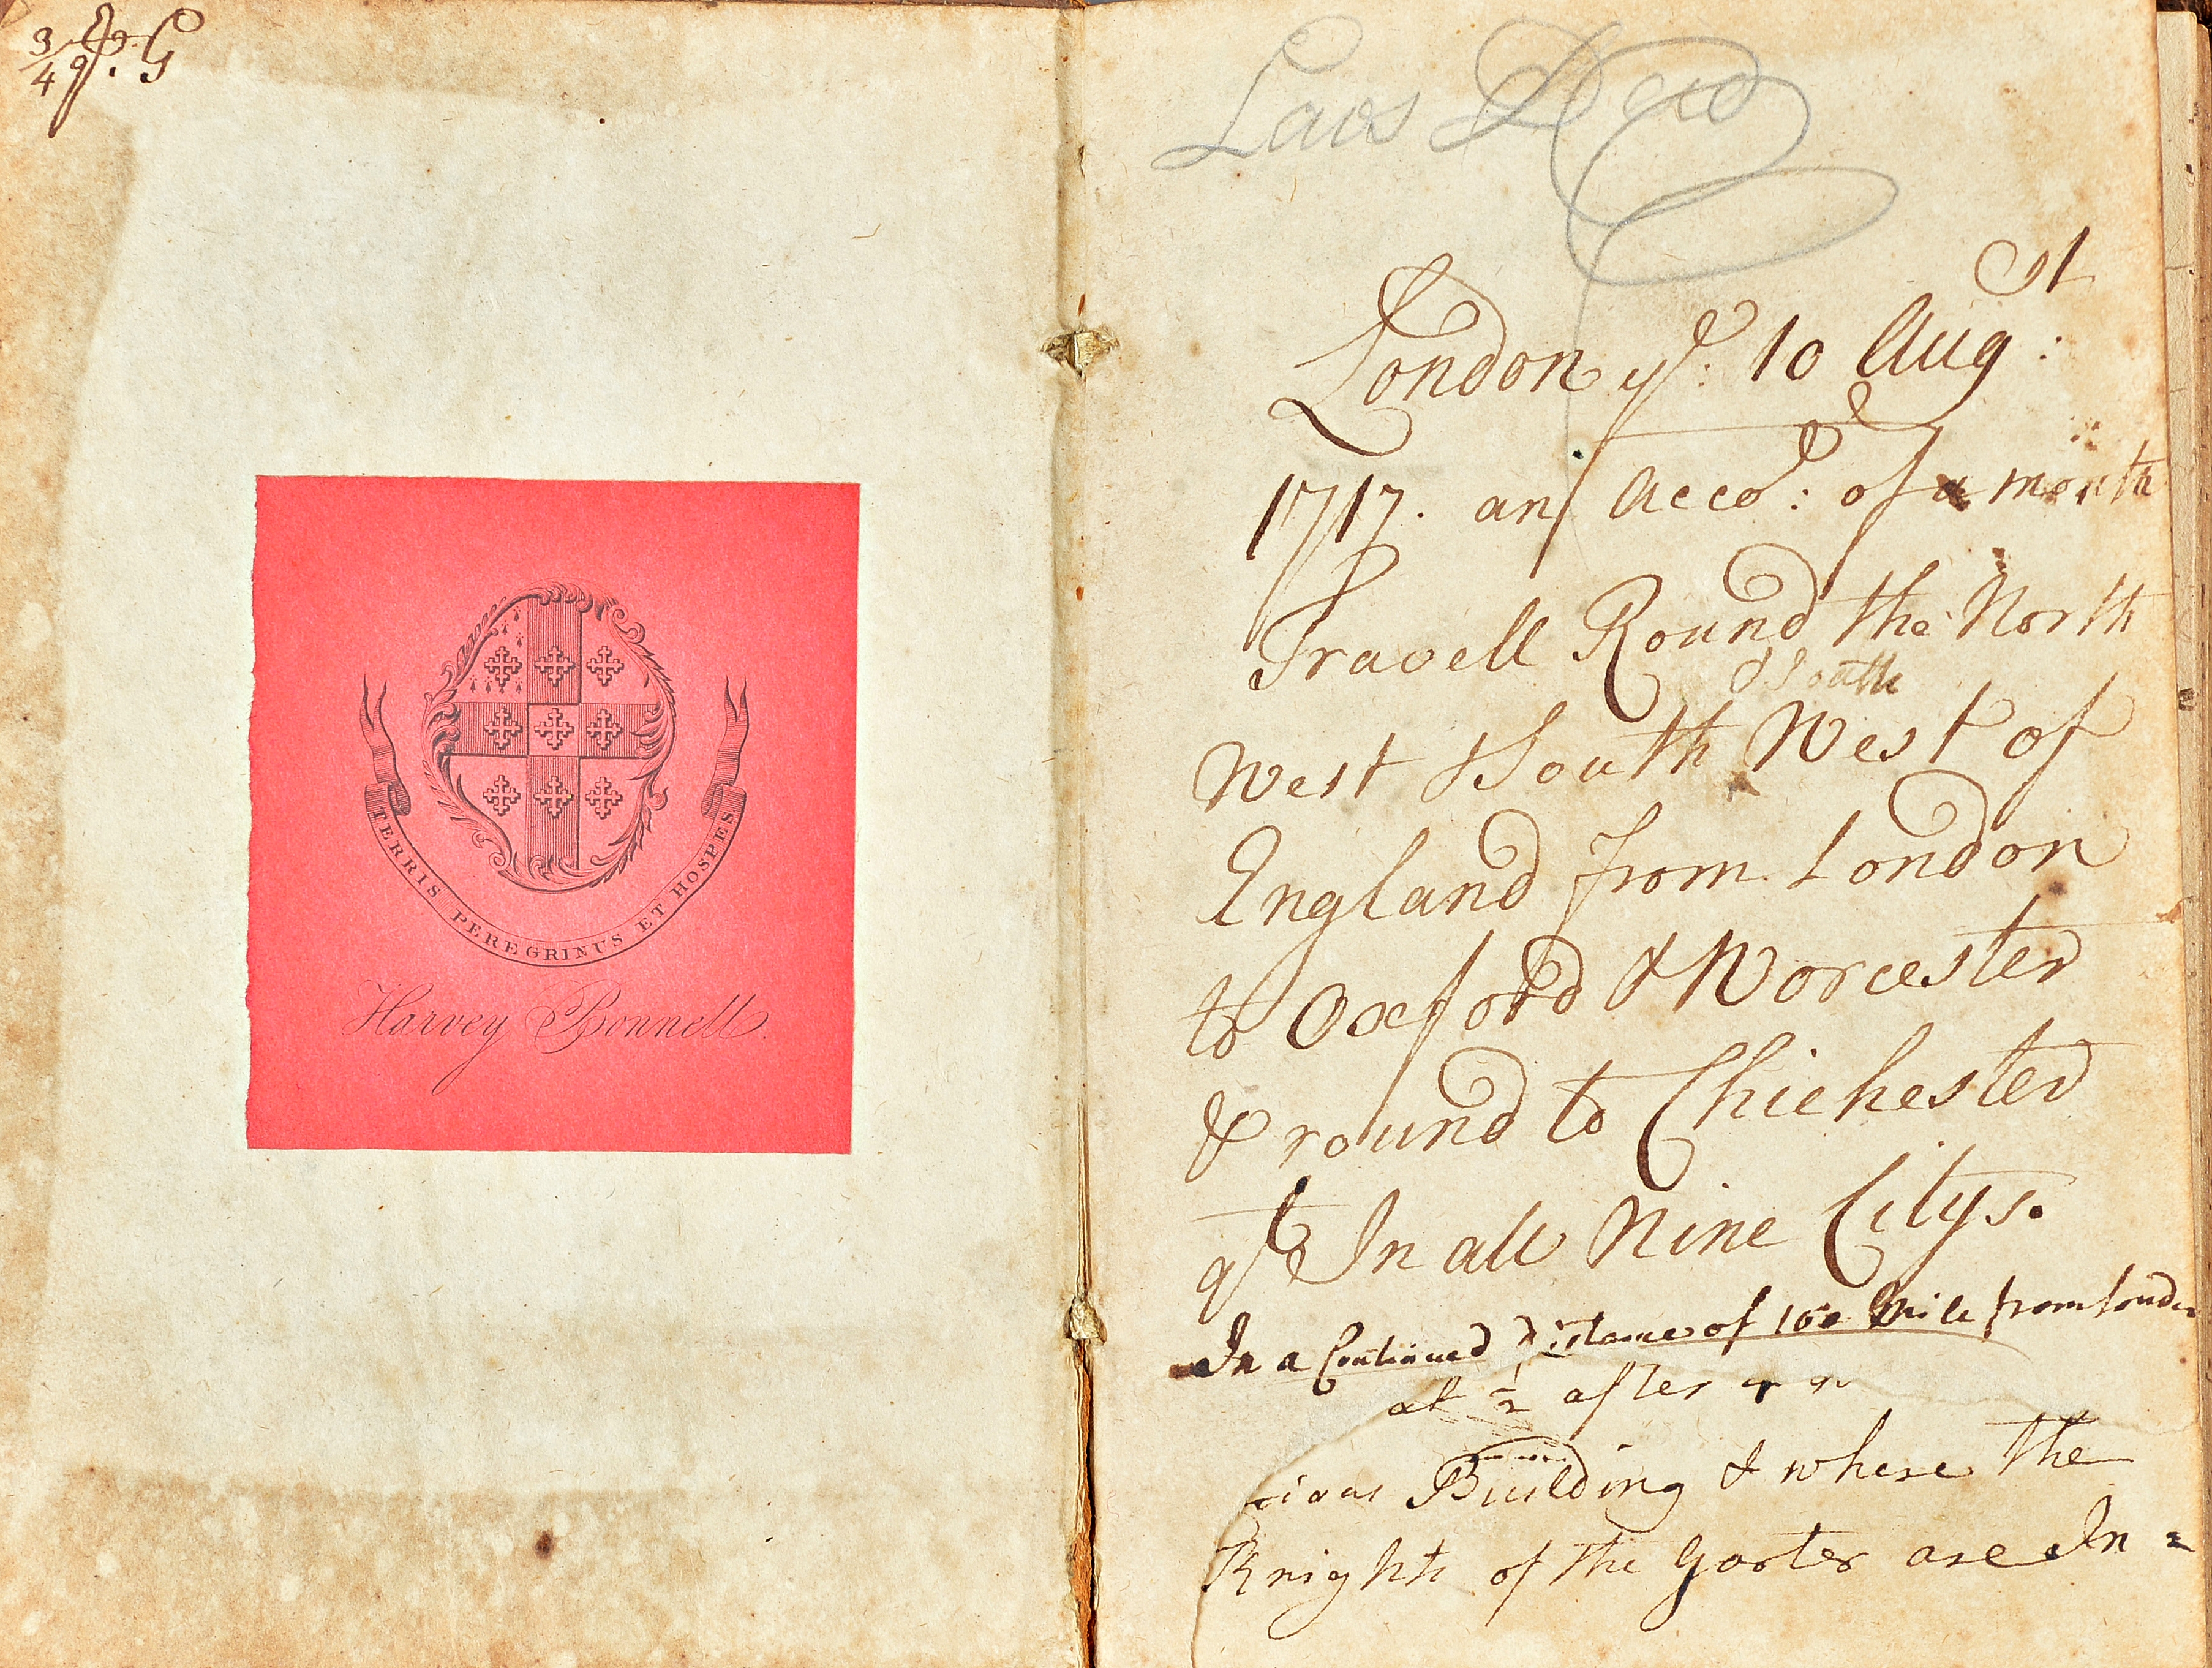 3/49. G
TERRIS PEREGRINUS ET HOSPES
Harvey Bonnell.
Laus Deo
London ye: 10 Augst:
1717. an Acco: of a month
Travell Round the North
& South
West & South West of
England from London
to Oxford & Worcester
& round to Chichester
In all Nine Citys.
In a Continued Distance of 160 Mile from London
at ½ after
cious Building & where the
Knights of the Garter are In =